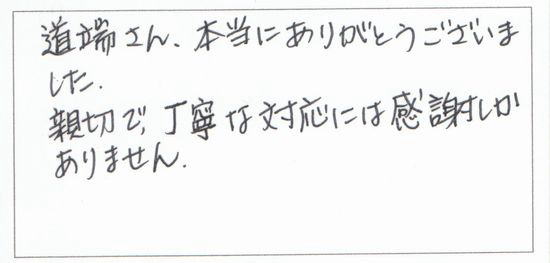 道端さん、本当にありがとうございま
した.
親切で、丁寧な対応には感謝しか
ありません.